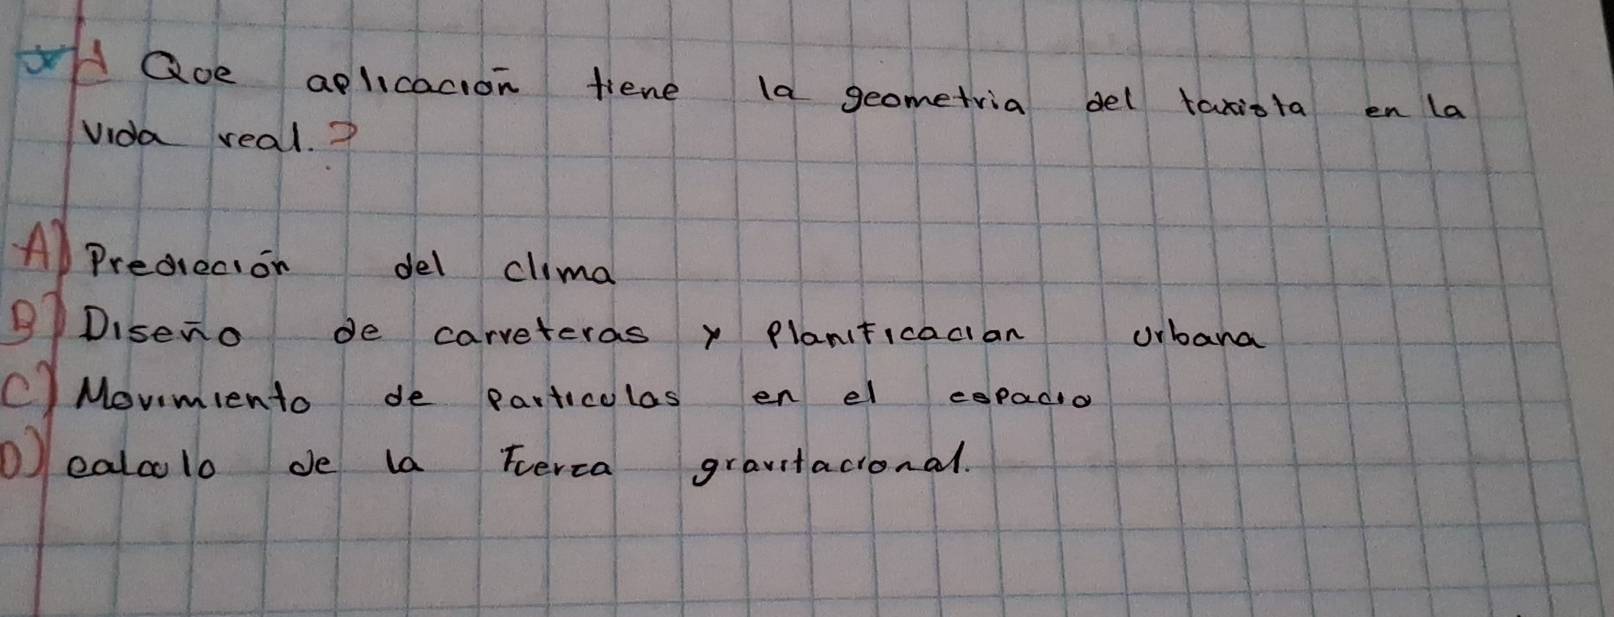 Que aplicación tiene la geometria del taxista en la
vida real.?
A) Predicción del clima
B) Diseño de carreteras y Planificacian urbana
C) Movimiento de Particulas en el espacio
D) calculo de la Fuerza gravitacional.